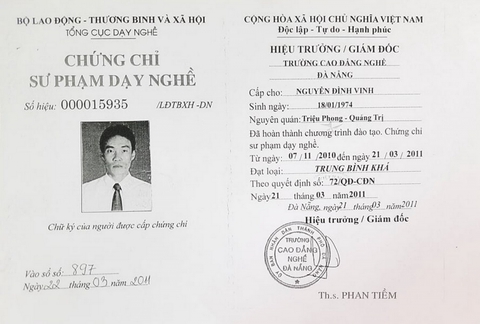 BỘ LAO ĐỘNG - THƯƠNG BINH VÀ XÃ HỘI
TỔNG CỤC DẠY NGHỀ
CHỨNG CHỈ
SƯ PHẠM DẠY NGHỀ
Số hiệu: 000015935 /LĐTBXH -DN
Chữ ký của người được cấp chứng chỉ
Vào sổ số: 897
Ngày 22 tháng 03 năm 2011
CỘNG HÒA XÃ HỘI CHỦ NGHĨA VIỆT NAM
Độc lập - Tự do - Hạnh phúc
HIỆU TRƯỞNG / GIÁM ĐỐC
TRƯỜNG CAO ĐẲNG NGHỀ
ĐÀ NẴNG
Cấp cho: NGUYỄN ĐÌNH VINH
Sinh ngày: 18/01/1974
Nguyên quán: Triệu Phong - Quảng Trị
Đã hoàn thành chương trình đào tạo. Chứng chỉ
sư phạm dạy nghề.
Từ ngày: 07 / 11 / 2010 đến ngày 21 / 03 / 2011
Đạt loại: TRUNG BÌNH KHÁ
Theo quyết định số: 72/QĐ-CĐN
Ngày 21 tháng 03 năm 2011
Đà Nẵng, ngày 21 tháng 03 năm 2011
Hiệu trưởng / Giám đốc
ỦY BAN NHÂN DÂN THÀNH PHỐ ĐÀ NẴNG
TRƯỜNG
CAO ĐẲNG
NGHỀ
ĐÀ NẴNG
Th.s. PHAN TIỀM